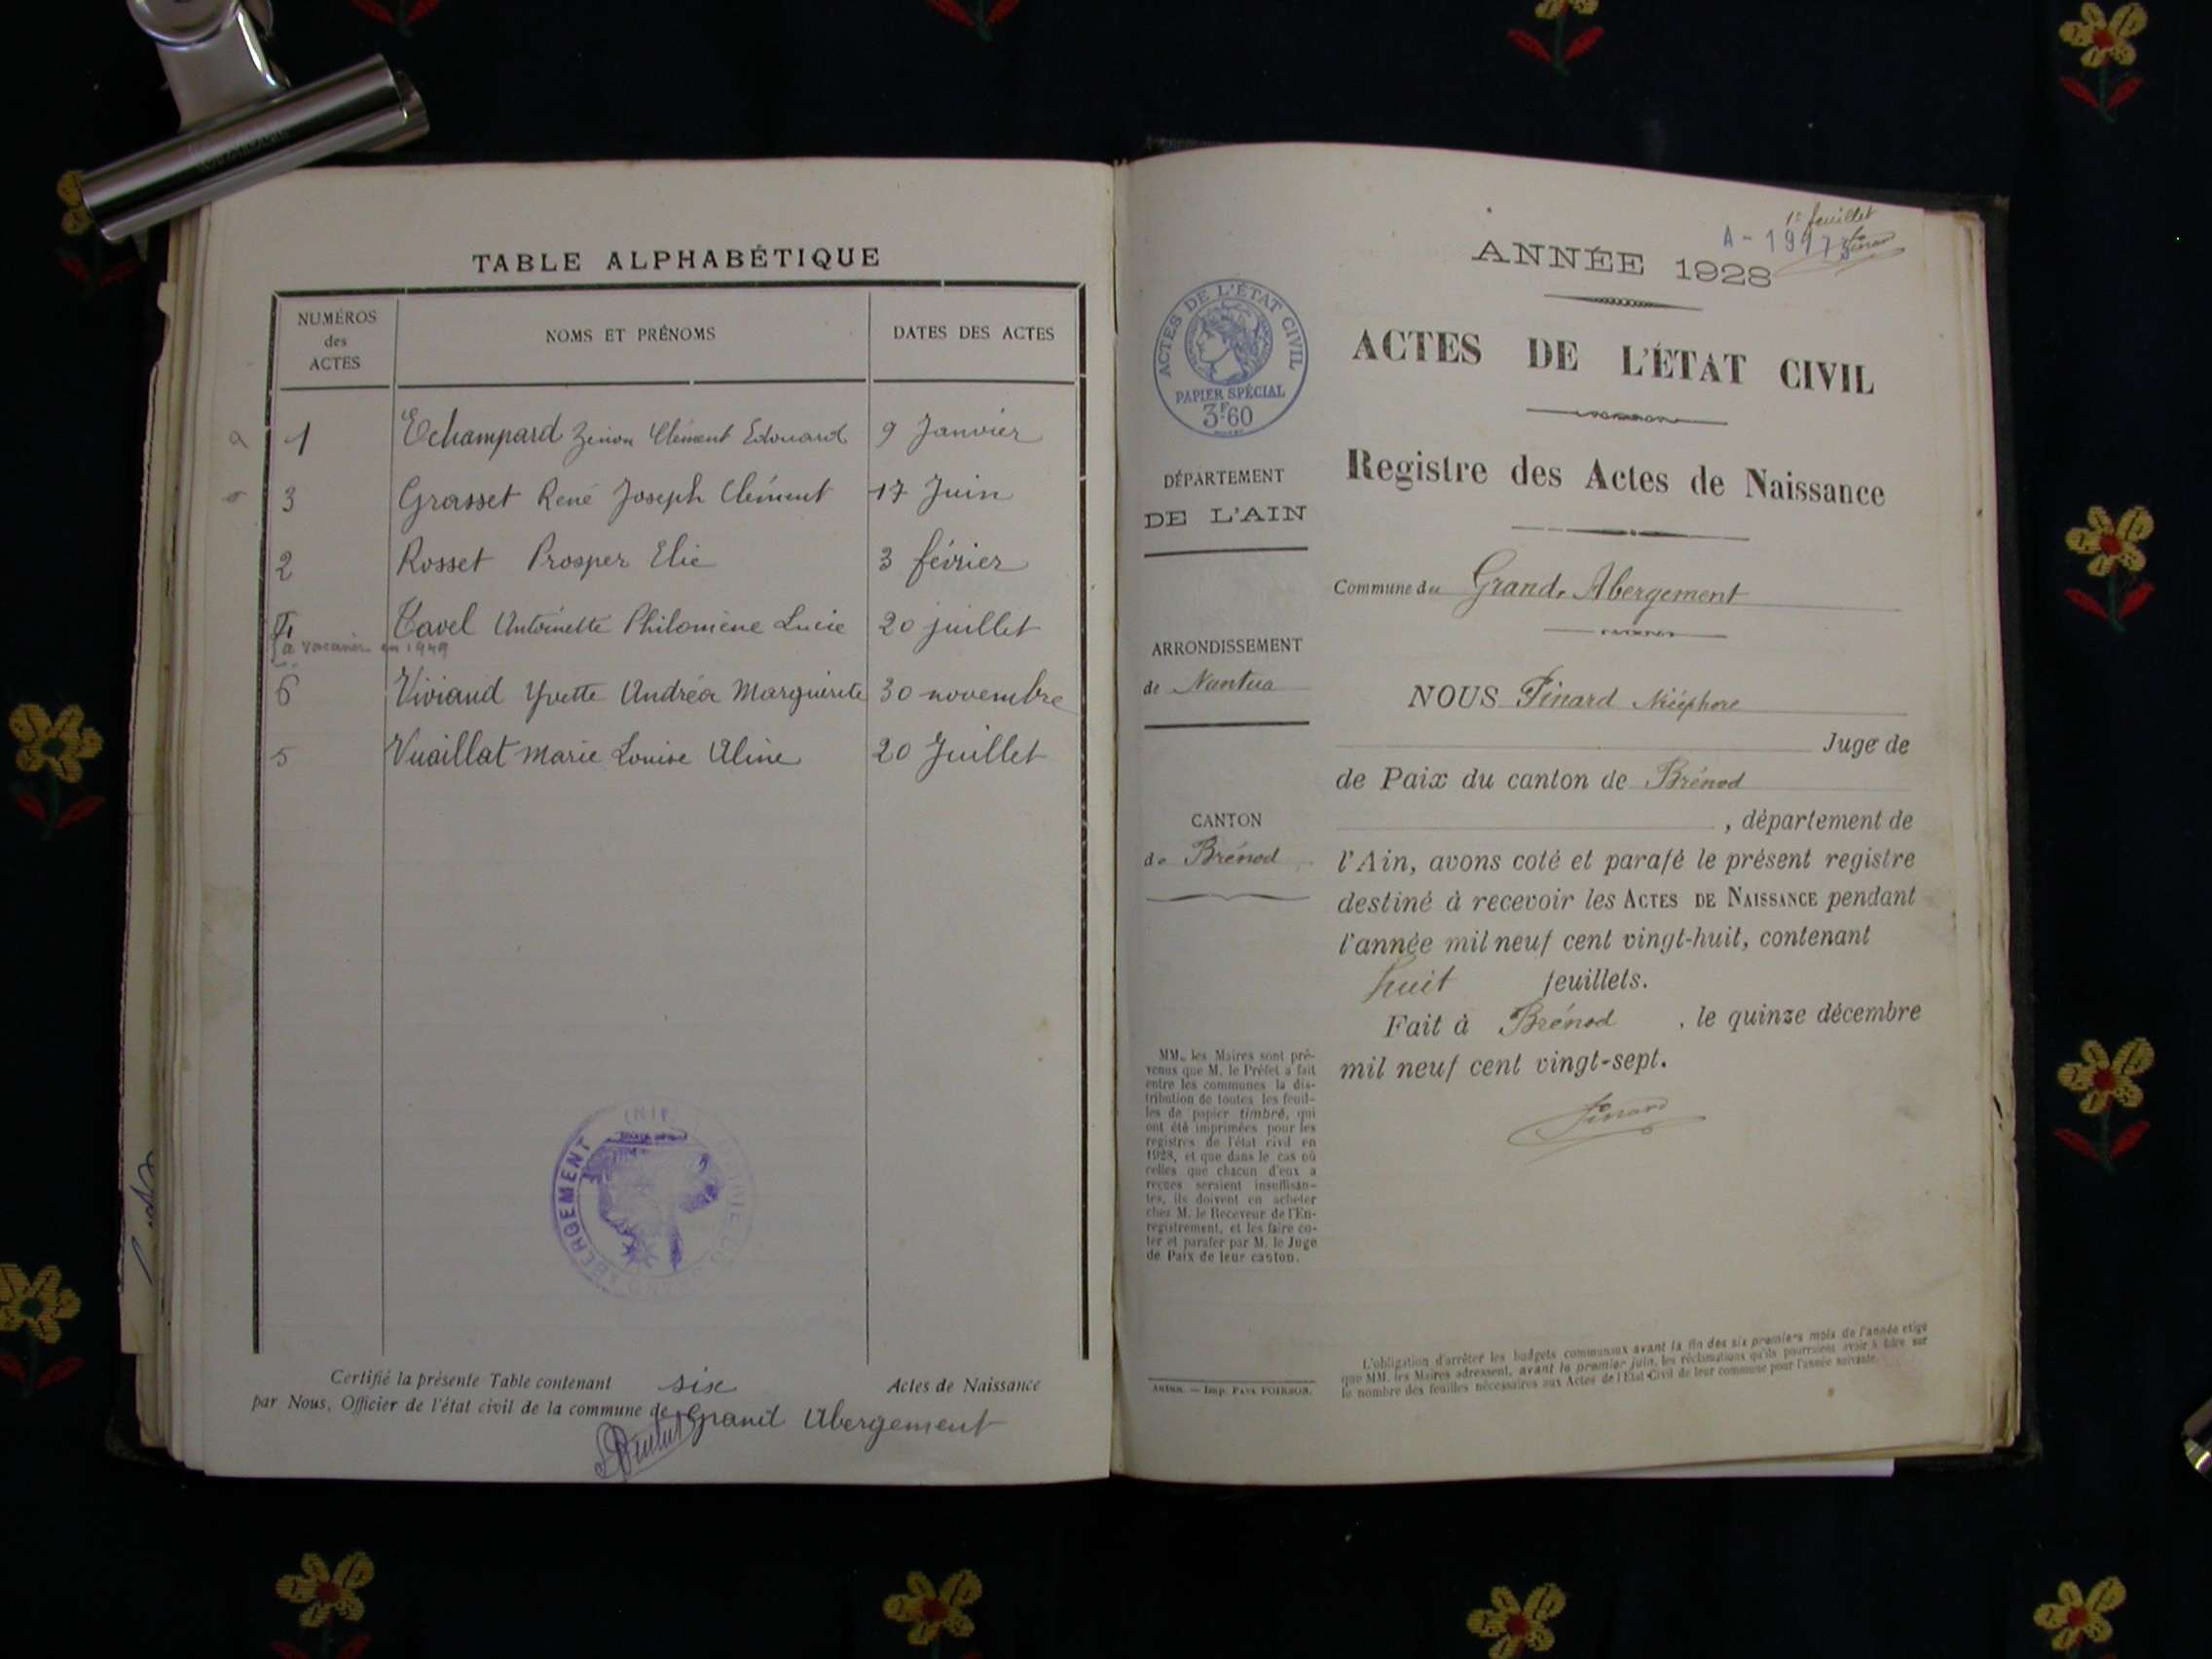 TABLE ALPHABÉTIQUE
NUMÉROS
des
ACTES
NOMS ET PRÉNOMS
DATES DES ACTES
1 Echampard Zenon Clément Edouard 9 Janvier
3 Grasset René Joseph Clément 17 Juin
2 Rosset Prosper Elie 3 février
Tavel Antoinette Philomène Lucie 20 juillet
à vacciner en 1949
6 Viviand Yvette Andréa Marguerite 30 novembre
5 Vuaillat Marie Louise Aline 20 Juillet
ABERGEMENT
Certifié la présente Table contenant six Actes de Naissance
par Nous, Officier de l'état civil de la commune de Grand Abergement
1er feuillet
A - 1917
Pinard
ANNÉE 1928
ACTES DE L'ÉTAT CIVIL
PAPIER SPÉCIAL
3F60
DÉPARTEMENT
DE L'AIN
ARRONDISSEMENT
de Nantua
CANTON
de Brénod
MM. les Maires sont pré-
venus que M. le Préfet a fait
entre les communes la dis-
tribution de toutes les feuil-
les de papier timbré, qui
ont été imprimées pour les
registres de l'état civil en
1928, et que dans le cas où
celles que chacun d'eux a
reçues seraient insuffisan-
tes, ils doivent en acheter
chez M. le Receveur de l'En-
registrement, et les faire co-
ter et parafer par M. le Juge
de Paix de leur canton.
Imp. PAUL POIRSON.
ACTES DE L'ÉTAT CIVIL
Registre des Actes de Naissance
Commune du Grand Abergement
NOUS Pinard Nicéphore
Juge de
de Paix du canton de Brénod
, département de
l'Ain, avons coté et parafé le présent registre
destiné à recevoir les ACTES DE NAISSANCE pendant
l'année mil neuf cent vingt-huit, contenant
huit feuillets.
Fait à Brénod , le quinze décembre
mil neuf cent vingt-sept.
Pinard
L'obligation d'arrêter les budgets communaux avant la fin des six premiers mois de l'année exige
que MM. les Maires adressent, avant le premier juin, les réclamations qu'ils pourraient avoir à faire sur
le nombre des feuilles nécessaires aux Actes de l'Etat-Civil de leur commune pour l'année suivante.